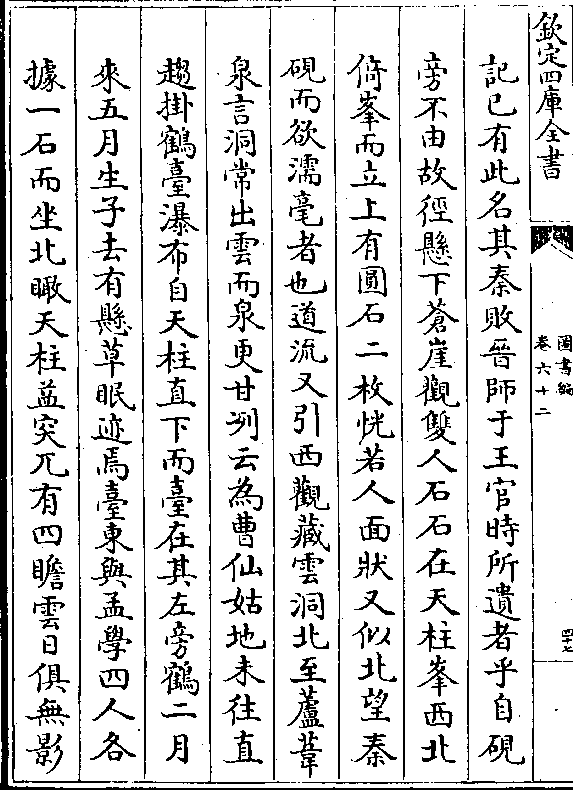 欽定四庫全書
圖書編
卷六十二
四十七
記已有此名其秦敗晉師于王官時所遺者乎自硯
旁不由故徑懸下蒼崖觀雙人石石在天柱峯西北
倚峯而立上有圓石二枚恍若人面狀又似北望秦
硯而欲濡毫者也道流又引西觀藏雲洞北至蘆葦
泉言洞常出雲而泉更甘冽云為曹仙姑地未往直
趨掛鶴臺瀑布自天柱直下而臺在其左旁鶴二月
來五月生子去有懸草眠迹焉臺東與孟學四人各
據一石而坐北瞰天柱益突兀有四瞻雲日俱無影